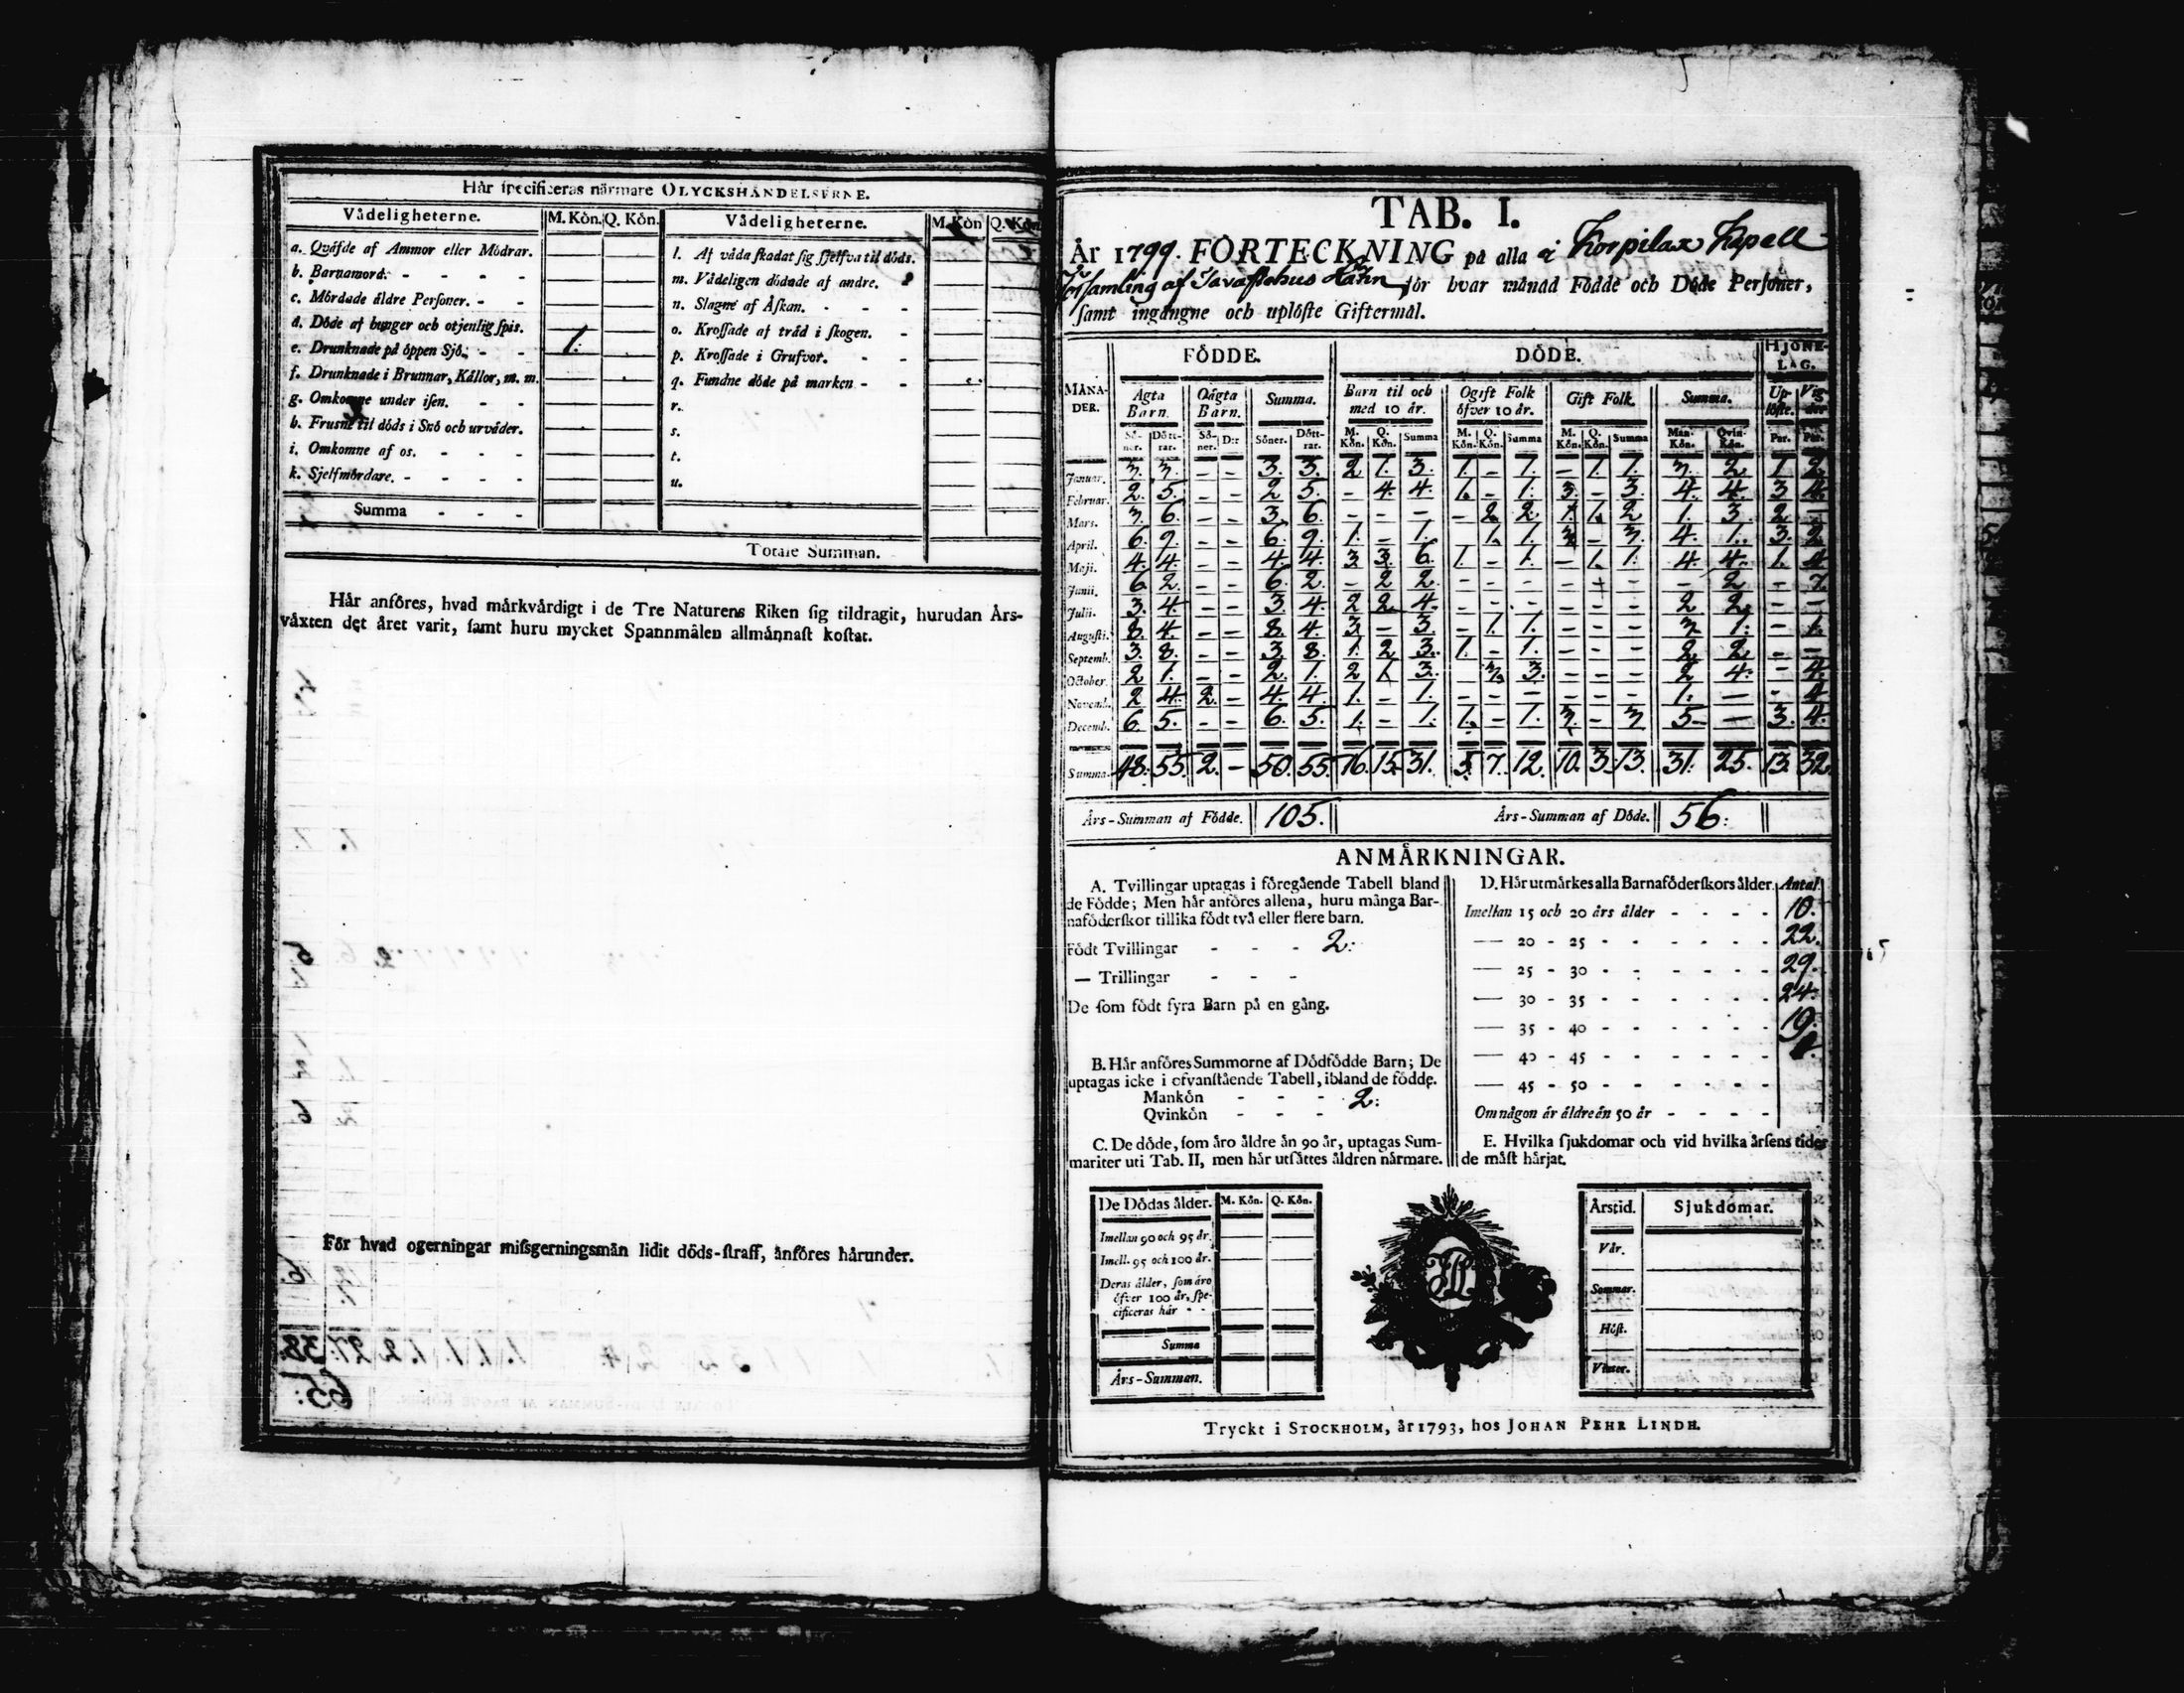 Hår specificeras närmare OLYCKSHÄNDELSERNE.
Vådeligheterne. M. Kön. Q. Kön. Vådeligheterne. M. Kön Q. Kön
a. Qväfde af Ammor eller Mödrar.
b. Barnamord. - - - -
c. Mördade äldre Personer. - -
d. Döde af hunger och otjenlig spis.
e. Drunknade på öppen Sjö. - - 1.
f. Drunknade i Brunnar, Källor, m. m.
g. Omkomne under isen. - - -
h. Frusne til döds i Snö och urväder.
i. Omkomne af os. - - -
k. Sjelfmördare. - - - -
Summa - - -
l. Af våda skadat sig sjelfva til döds.
m. Vådeligen dödade af andre.
n. Slagne af Åskan. - - -
o. Krossade af träd i skogen. -
p. Krossade i Grufvor. - -
q. Fundne döde på marken - -
r.
s.
t.
u.
Totale Summan.
Hår anföres, hvad märkvärdigt i de Tre Naturens Riken sig tildragit, hurudan Års-
växten det året varit, samt huru mycket Spannmålen allmännast kostat.
För hvad ogerningar missgerningsmän lidit döds-straff, anföres härunder.
TAB. I.
År 1799. FÖRTECKNING på alla i Korpilax Kapell
Församling af Tavastehus Lähn för hvar månad Födde och Döde Personer,
samt ingångne och uplöste Giftermål.
MÅNA-DER. FÖDDE. DÖDE. HJONE-LAG.
Ägta Barn. Oägta Barn. Summa. Barn til och med 10 år. Ogift Folk öfver 10 år. Gift Folk. Summa. Up-löste. Vig-de
Sö-ner. Dött-rar. Sö-ner. D:r Söner. Dött-rar. M. Kön. Q. Kön. Summa M. Kön. Q. Kön. Summa M. Kön. Q. Kön. Summa Man-Kön. Qvin-Kön. Par. Par.
Januar. 3. 3. - - 3. 3. 2 1. 3. 1. - 1. - 1. 1. 3. 2. 1. 2.
Februar. 2. 5. - - 2 5. - 4. 4. 1. - 1. 3. - 3. 4. 4. 3 4.
Mars. 3. 6. - - 3. 6. - - - - 2. 2. 1. 1. 2 1. 3. 2. -
April. 6. 9. - - 6. 9. 1. - 1. 1. 1. 3. - 3. 4. 1. 3. 2.
Maji. 4. 4. - - 4. 4. 3 3. 6. 1. - 1. - 1. 1. 4. 4. 1. 4
Junii. 6. 2. - - 6. 2. - 2 2. - - - - - - - 2 - 7.
Julii. 3. 4. - - 3. 4. 2 2. 4. - - - - - - 2 2. - -
Augusti. 8. 4. - - 8. 4. 3 - 3. - 1. 1. - - - 3. 1. - 1.
Septemb. 3. 8. - - 3. 8. 1. 2 3. 1. - 1. - - - 2. 2. - -
October. 2 1. - - 2. 1. 2 1. 3. 3. 3. - - - 2 4. - 4.
Novemb. 2 4. 2. - 4. 4. 1. - 1. - - - - - - 1. - - 4
Decemb. 6. 5. - - 6. 5. 1. - 1. 1. - 1. 3. - 3 5. - 3. 4.
Summa. 48. 55. 2. - 50. 55. 16. 15. 31. 5. 7. 12. 10. 3. 13. 31. 25. 13. 32.
Års-Summan af Födde. 105. Års-Summan af Döde. 56.
ANMÄRKNINGAR.
A. Tvillingar uptagas i föregående Tabell bland
de Födde; Men här anföres allena, huru många Bar-
naföderskor tillika födt två eller flere barn.
Födt Tvillingar - - - 2:
— Trillingar - - -
De som födt fyra Barn på en gång.
B. Här anföres Summorne af Dödfödde Barn; De
uptagas icke i ofvanstående Tabell, ibland de födde.
Mankön - - - 2:
Qvinkön - - -
C. De döde, som äro äldre än 90 år, uptagas Sum-
mariter uti Tab. II, men här utsättes åldren närmare.
D. Här utmärkes alla Barnaföderskors ålder. Antal.
Imellan 15 och 20 års ålder - - - - 10.
— 20 - 25 - - - - - - 22.
— 25 - 30 - - - - - - 29.
— 30 - 35 - - - - - - 24.
— 35 - 40 - - - - - - 19.
— 40 - 45 - - - - - -
— 45 - 50 - - - - - -
Om någon är äldre än 50 år - - - -
E. Hvilka sjukdomar och vid hvilka årsens tider
de mäst härjat.
De Dödas ålder. M. Kön. Q. Kön.
Imellan 90 och 95 år.
Imell. 95 och 100 år.
Deras ålder, som äro
öfver 100 år, spe-
cificeras här - -
Summa
Års-Summan.
Årstid. Sjukdomar.
Vår.
Sommar.
Höst.
Vinter.
Tryckt i STOCKHOLM, år 1793, hos JOHAN PEHR LINDH.